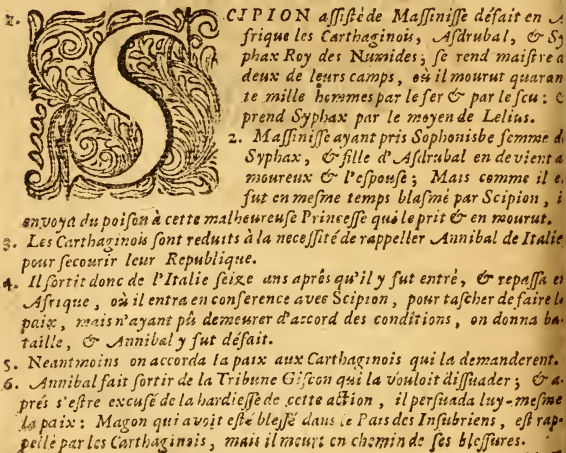 1. SCIPION aſſiſté de Maſſiniſſe défait en A
frique les Carthaginois, Aſdrubal, & Sy
phax Roy des Numides; ſe rend maiſtre d
deux de leurs camps, où il mourut quaran
te mille hommes par le fer & par le feu:
prend Syphax par le moyen de Lelius.
2. Maſſiniſſe ayant pris Sophonisbe femme d
Syphax, & fille d'Aſdrubal en devient a
moureux & l'eſpouſe; Mais comme il e
fut en meſme temps blaſmé par Scipion, i
envoya du poiſon à cette malheureuſe Princeſſe qui le prit & en mourut.
3. Les Carthaginois ſont reduits à la neceſſité de rappeller Annibal de Italie
pour ſecourir leur Republique.
4. Il ſortit donc de l'Italie ſeize ans aprés qu'il y fut entré, & repaſſa en
Afrique, où il entra en conference avec Scipion, pour taſcher de faire la
paix, mais n'ayant pû demeurer d'accord des conditions, on donna ba-
taille, & Annibal y fut défait.
5. Neantmoins on accorda la paix aux Carthaginois qui la demanderent.
6. Annibal fait ſortir de la Tribune Giſcon qui la vouloit diſſuader; & a-
prés s'eſtre excuſé de la hardieſſe de cette action, il perſuada luy-meſme
la paix: Magon qui avoit eſté bleſſé dans le Pais des Inſubriens, eſt rap-
pellé par les Carthaginois, mais il meurt en chemin de ſes bleſſures.